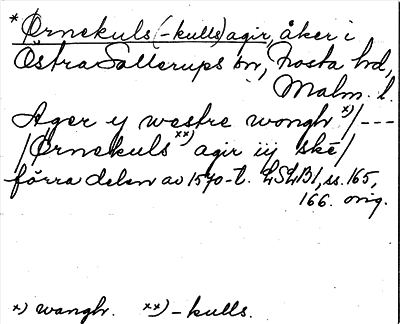 * Ørnekuls (-kulls) agir, åker i
Östra Sallerups sn, Frosta hd,
Malm. l.
Ager y westre wongh x)/---
/Ørnekuls xx) agir iij ske/
förra delen av 1570-t. LSLB1, ss. 165,
166. orig.
x) wangh. xx) -kulls.